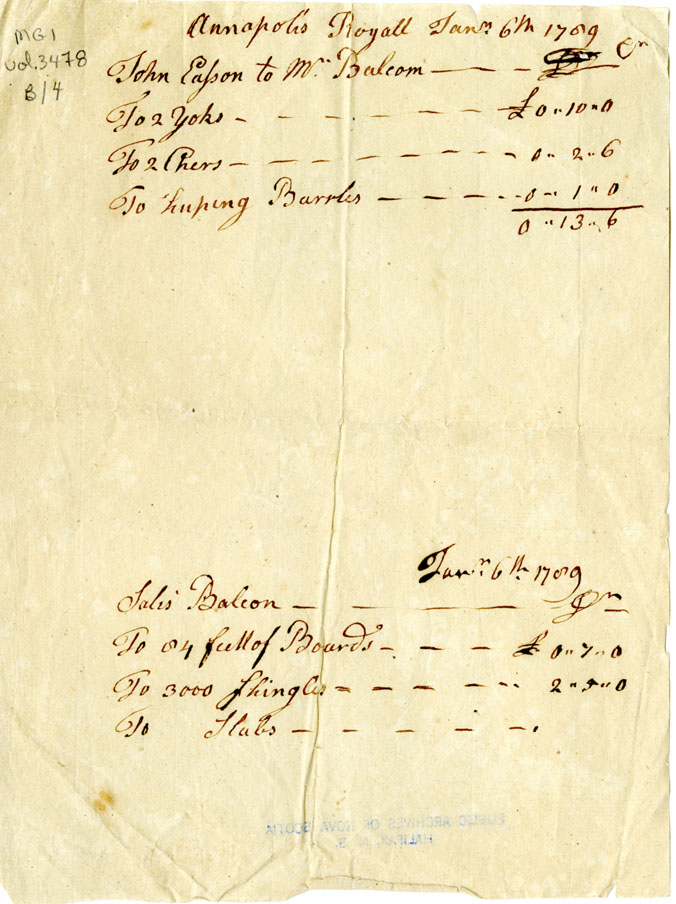 MG1
vol.3478
B/4
Annapolis Royall Janry 6th 1789
John Easson to Mr Balcom — — Cr
To 2 Yoks - — — — — £ 0 " 10 " 0
To 2 Chers — — — — — 0 " 2 " 6
To huping Barrles — — — - 0 " 1 " 0
0 " 13 " 6
Janry 6th 1789
Balcon — — — — Dr
To 84 feet of Boards - — — - £ 0 " 7 " 0
To 3000 Shingles - — — — - 2 " 5 " 0
To Slabs — — — — -
PUBLIC ARCHIVES OF NOVA SCOTIA
HALIFAX, N. S.